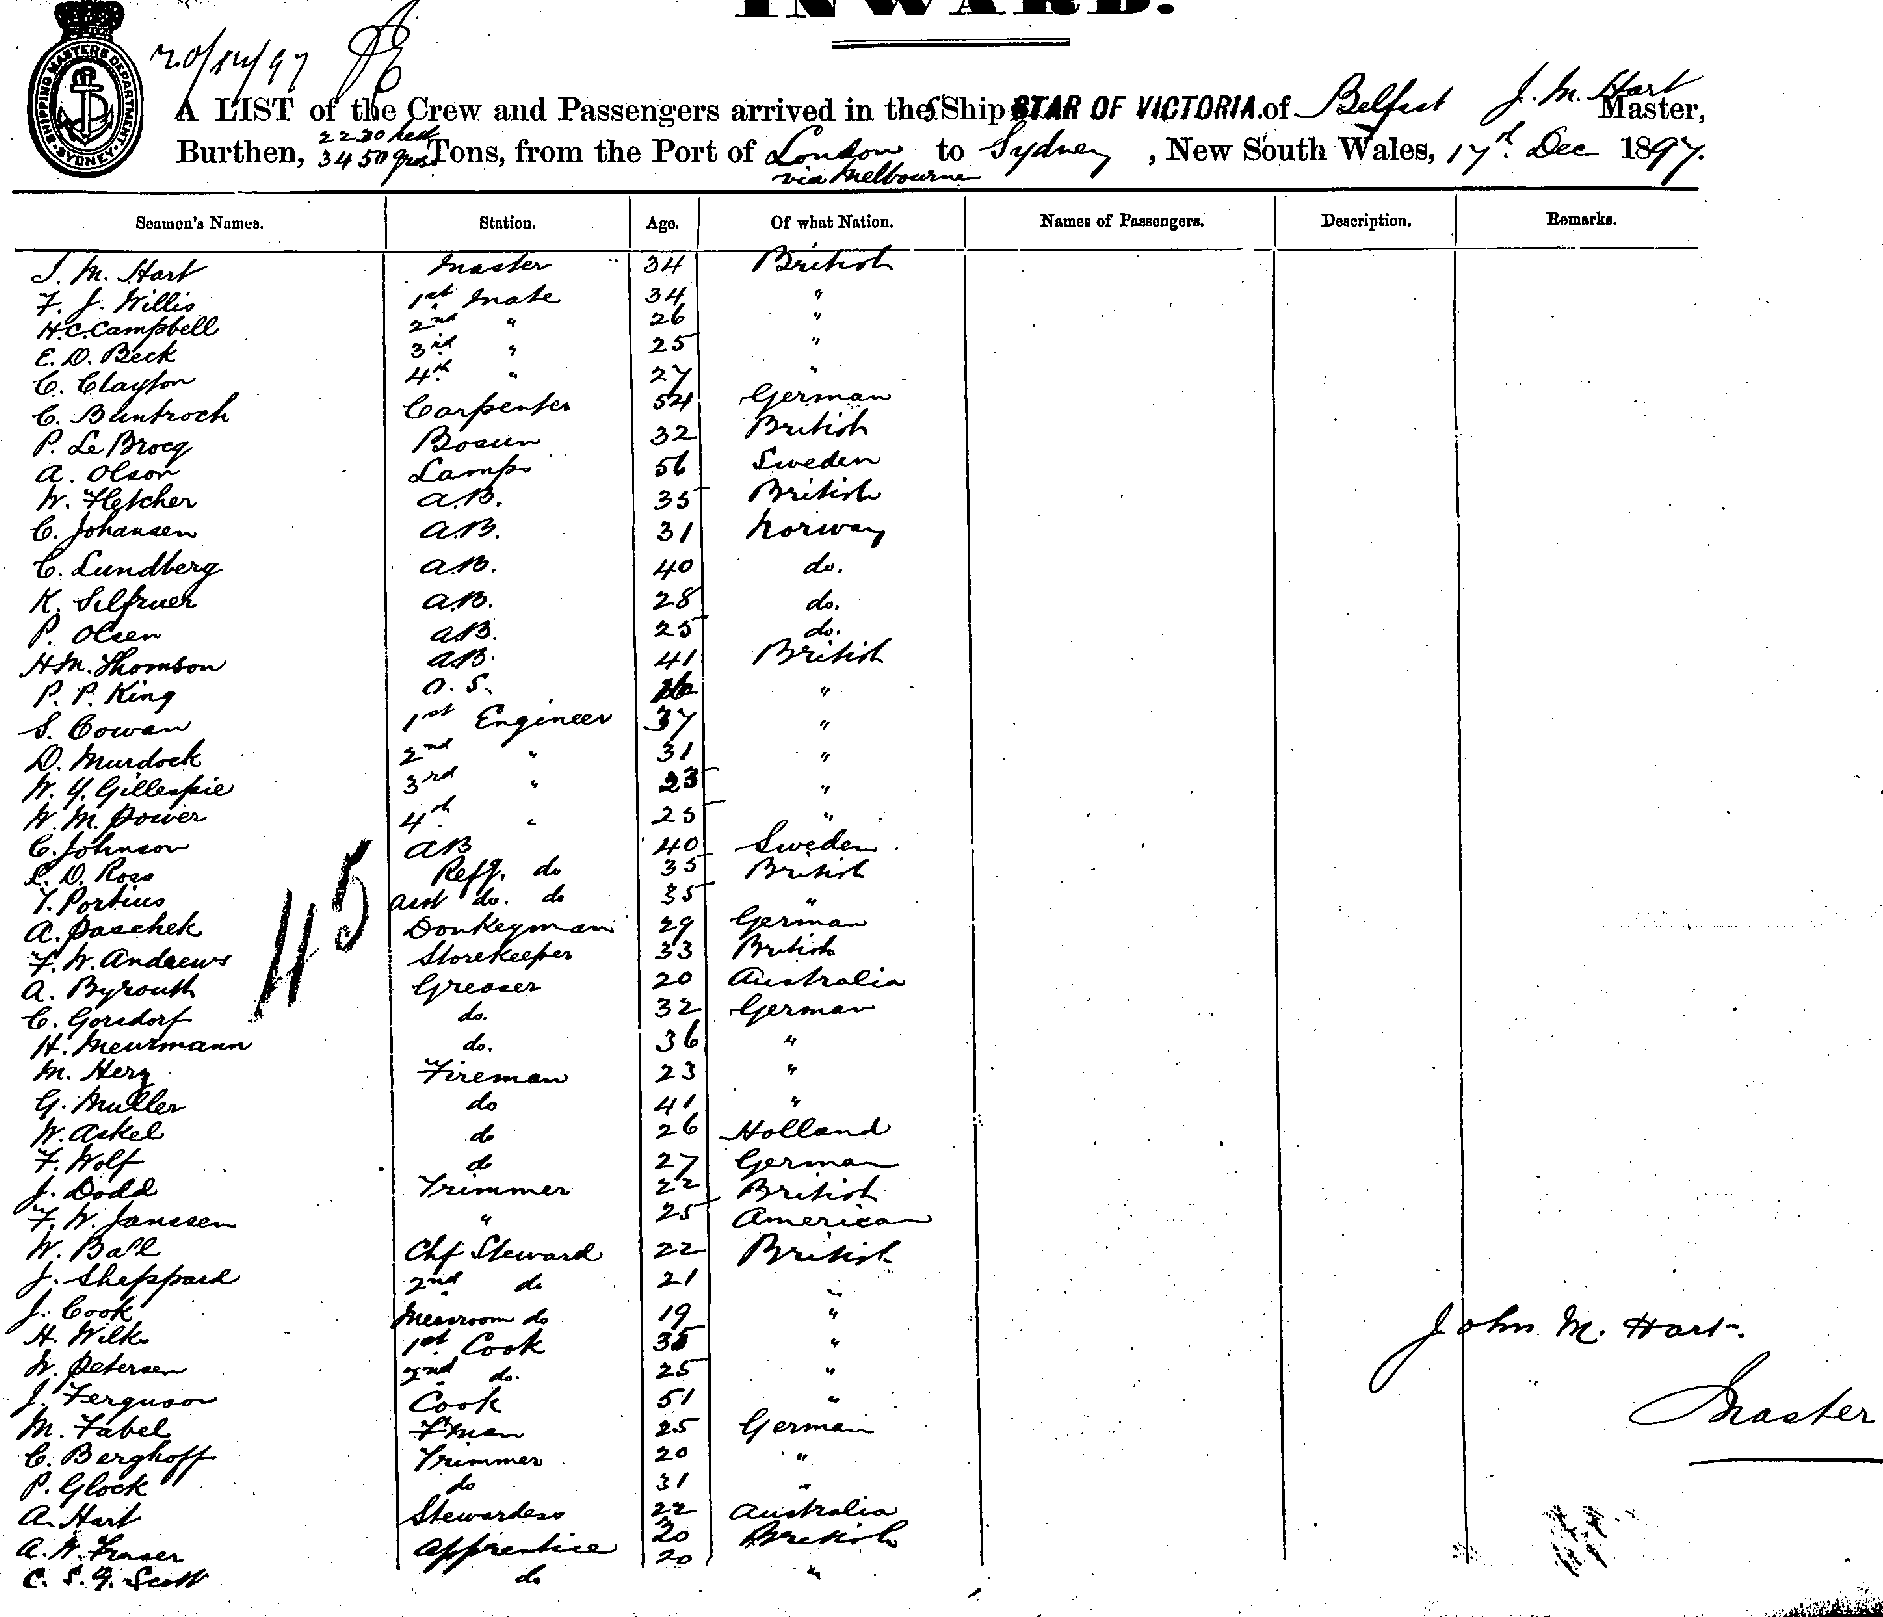 INWARD.
SHIPPING MASTERS DEPARTMENT SYDNEY
20/12/97
A LIST of the Crew and Passengers arrived in the S Ship STAR OF VICTORIA. of Belfast J. M. Hart Master,
Burthen, 2230 net 3450 gros Tons, from the Port of London via Melbourne to Sydney, New South Wales, 17th Dec 1897.
Seamen's Names. Station. Age. Of what Nation. Names of Passengers. Description. Remarks.
J. M. Hart Master 34 British
F. J. Willis 1st Mate 34 "
H.C. Campbell 2nd " 26 "
E. D. Beck 3rd " 25 "
C. Clayton 4th " 27 "
C. Buntroch Carpenter 54 German
P. Le Brocq Bosun 32 British
A. Olson Lamps 56 Sweden
W. Fletcher A.B. 35 British
C. Johansen A.B. 31 Norway
C. Lundberg A.B. 40 do.
K. A.B. 28 do.
P. Olsen A.B. 25 do.
H.M. Thomson A.B. 41 British
P. P. King O. S. "
S. Cowan 1st Engineer 37 "
D. Murdock 2nd " 31 "
W. Y. Gillespie 3rd " 23 "
W. M. Power 4th " 25 "
C. Johnson AB 40 Sweden
L. D. Ross Refg. do 35 British
T. Portius Asst do. do 35 "
A. Paschek Donkeyman 29 German
F. W. Andrews Storekeeper 33 British
A. Byrouth Greaser 20 Australia
C. Gorsdorf do. 32 German
H. Meurmann do. 36 "
M. Herz Fireman 23 "
G. Muller do 41 "
W. Askel do 26 Holland
F. Wolf do 27 German
J. Dodd Trimmer 22 British
F. W. Janssen " 25 American
W. Ball Chf Steward 22 British
J. Sheppard 2nd do 21 "
J. Cook Messroom do 19 "
H. Wilk 1st Cook 35 "
W. Petersen 2nd do. 25 "
J. Ferguson Cook 51 "
M. Fabel F'man 25 German
C. Berghoff Trimmer 20 "
P. Glock do 31 "
A. Hart Stewardess 22 Australia
A. W. Fraser Apprentice 20 British
C. S. G. Scott do 20 "
45
John M. Hart.
Master